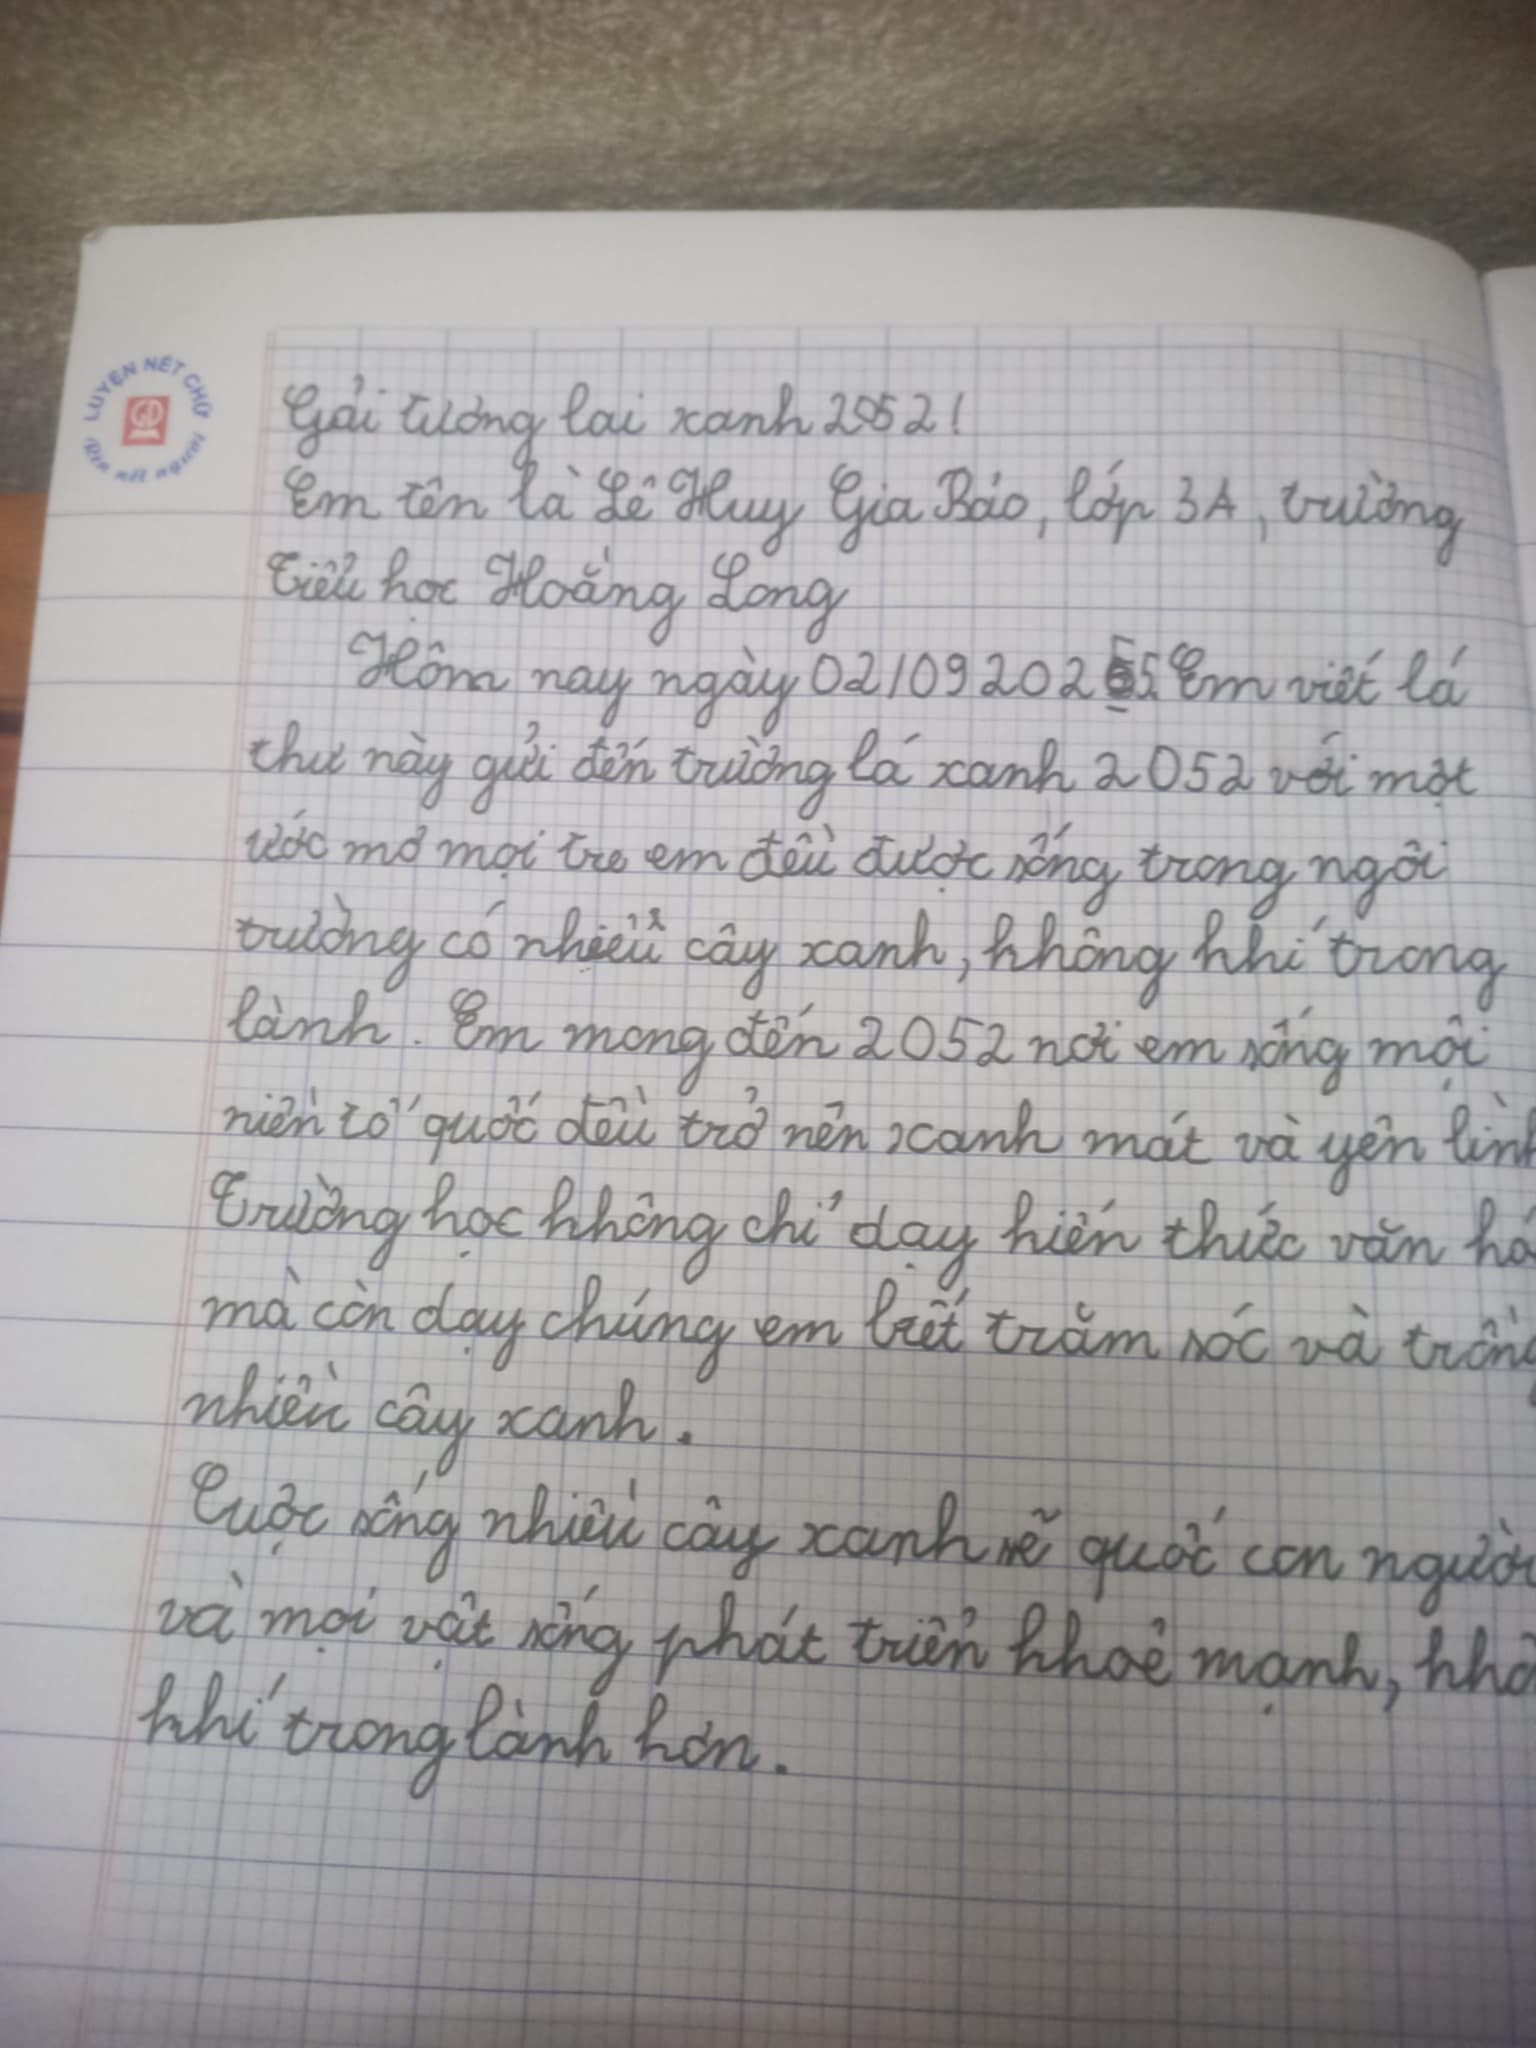 LUYỆN NÉT CHỮ
Rèn nết người
Gải tương lai xanh 2052!
Em tên là Lê Huy Gia Bảo, lớp 3A, trường
Tiểu học Hoằng Long
Hôm nay ngày 02/09 2025. Em viết lá
thư này gửi đến trường lá xanh 2052 với một
ước mơ mọi tre em đều được sống trong ngôi
trường có nhiều cây xanh, không khí trong
lành. Em mong đến 2052 nơi em sống mội
niền tổ quốc đều trở nên xanh mát và yên
Trường học không chỉ dạy kiến thức văn
mà còn dạy chúng em biết trăm sóc và
nhiều cây xanh.
Cuộc sống nhiều cây xanh sẽ quốc con người
và mọi vật sống phát triển khoẻ mạnh,
khí trong lành hơn.